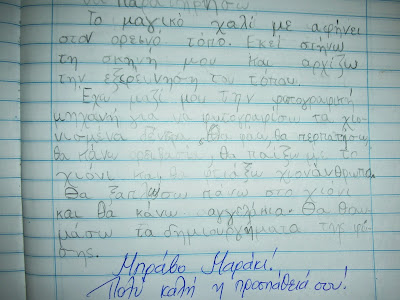 Το μαγικό χαλί με αφήνει
στον ορεινό τόπο. Εκεί στήνω
τη σκηνή μου και αρχίζω
την εξερεύνηση του τόπου.
Έχω μαζί μου την φωτογραφική
μηχανή για να φωτογραφίσω τα χιο-
νισμένα θα περπατήσω,
θα κάνω ορειβασία, θα παίξω με το
χιόνι και θα φτιάξω χιονάνθρωπο.
Θα ξαπλώσω πάνω στο χιόνι
και θα κάνω αγγελάκια. Θα θαυ-
μάσω τα δημιουργήματα της φύ-
σης.
Μπράβο Μαράκι!
Πολύ καλή η προσπάθειά σου!